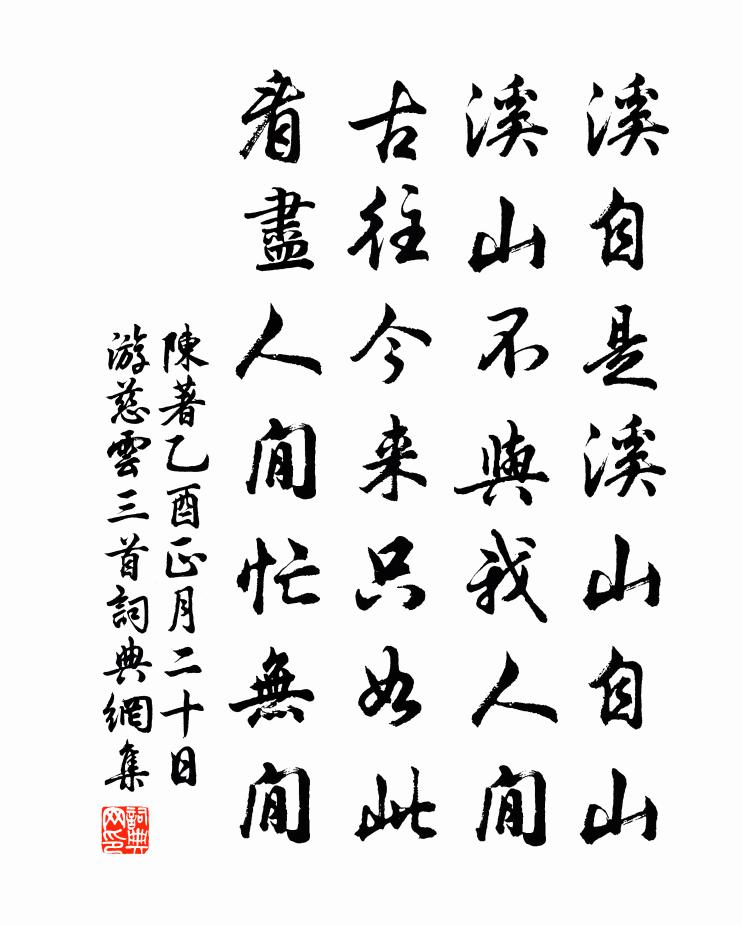 溪自是溪山自山
溪山不與我人閒
古往今来只如此
看盡人間忙無閒
陳著乙酉正月二十日
游慈雲三首詞典網集
詞典网印